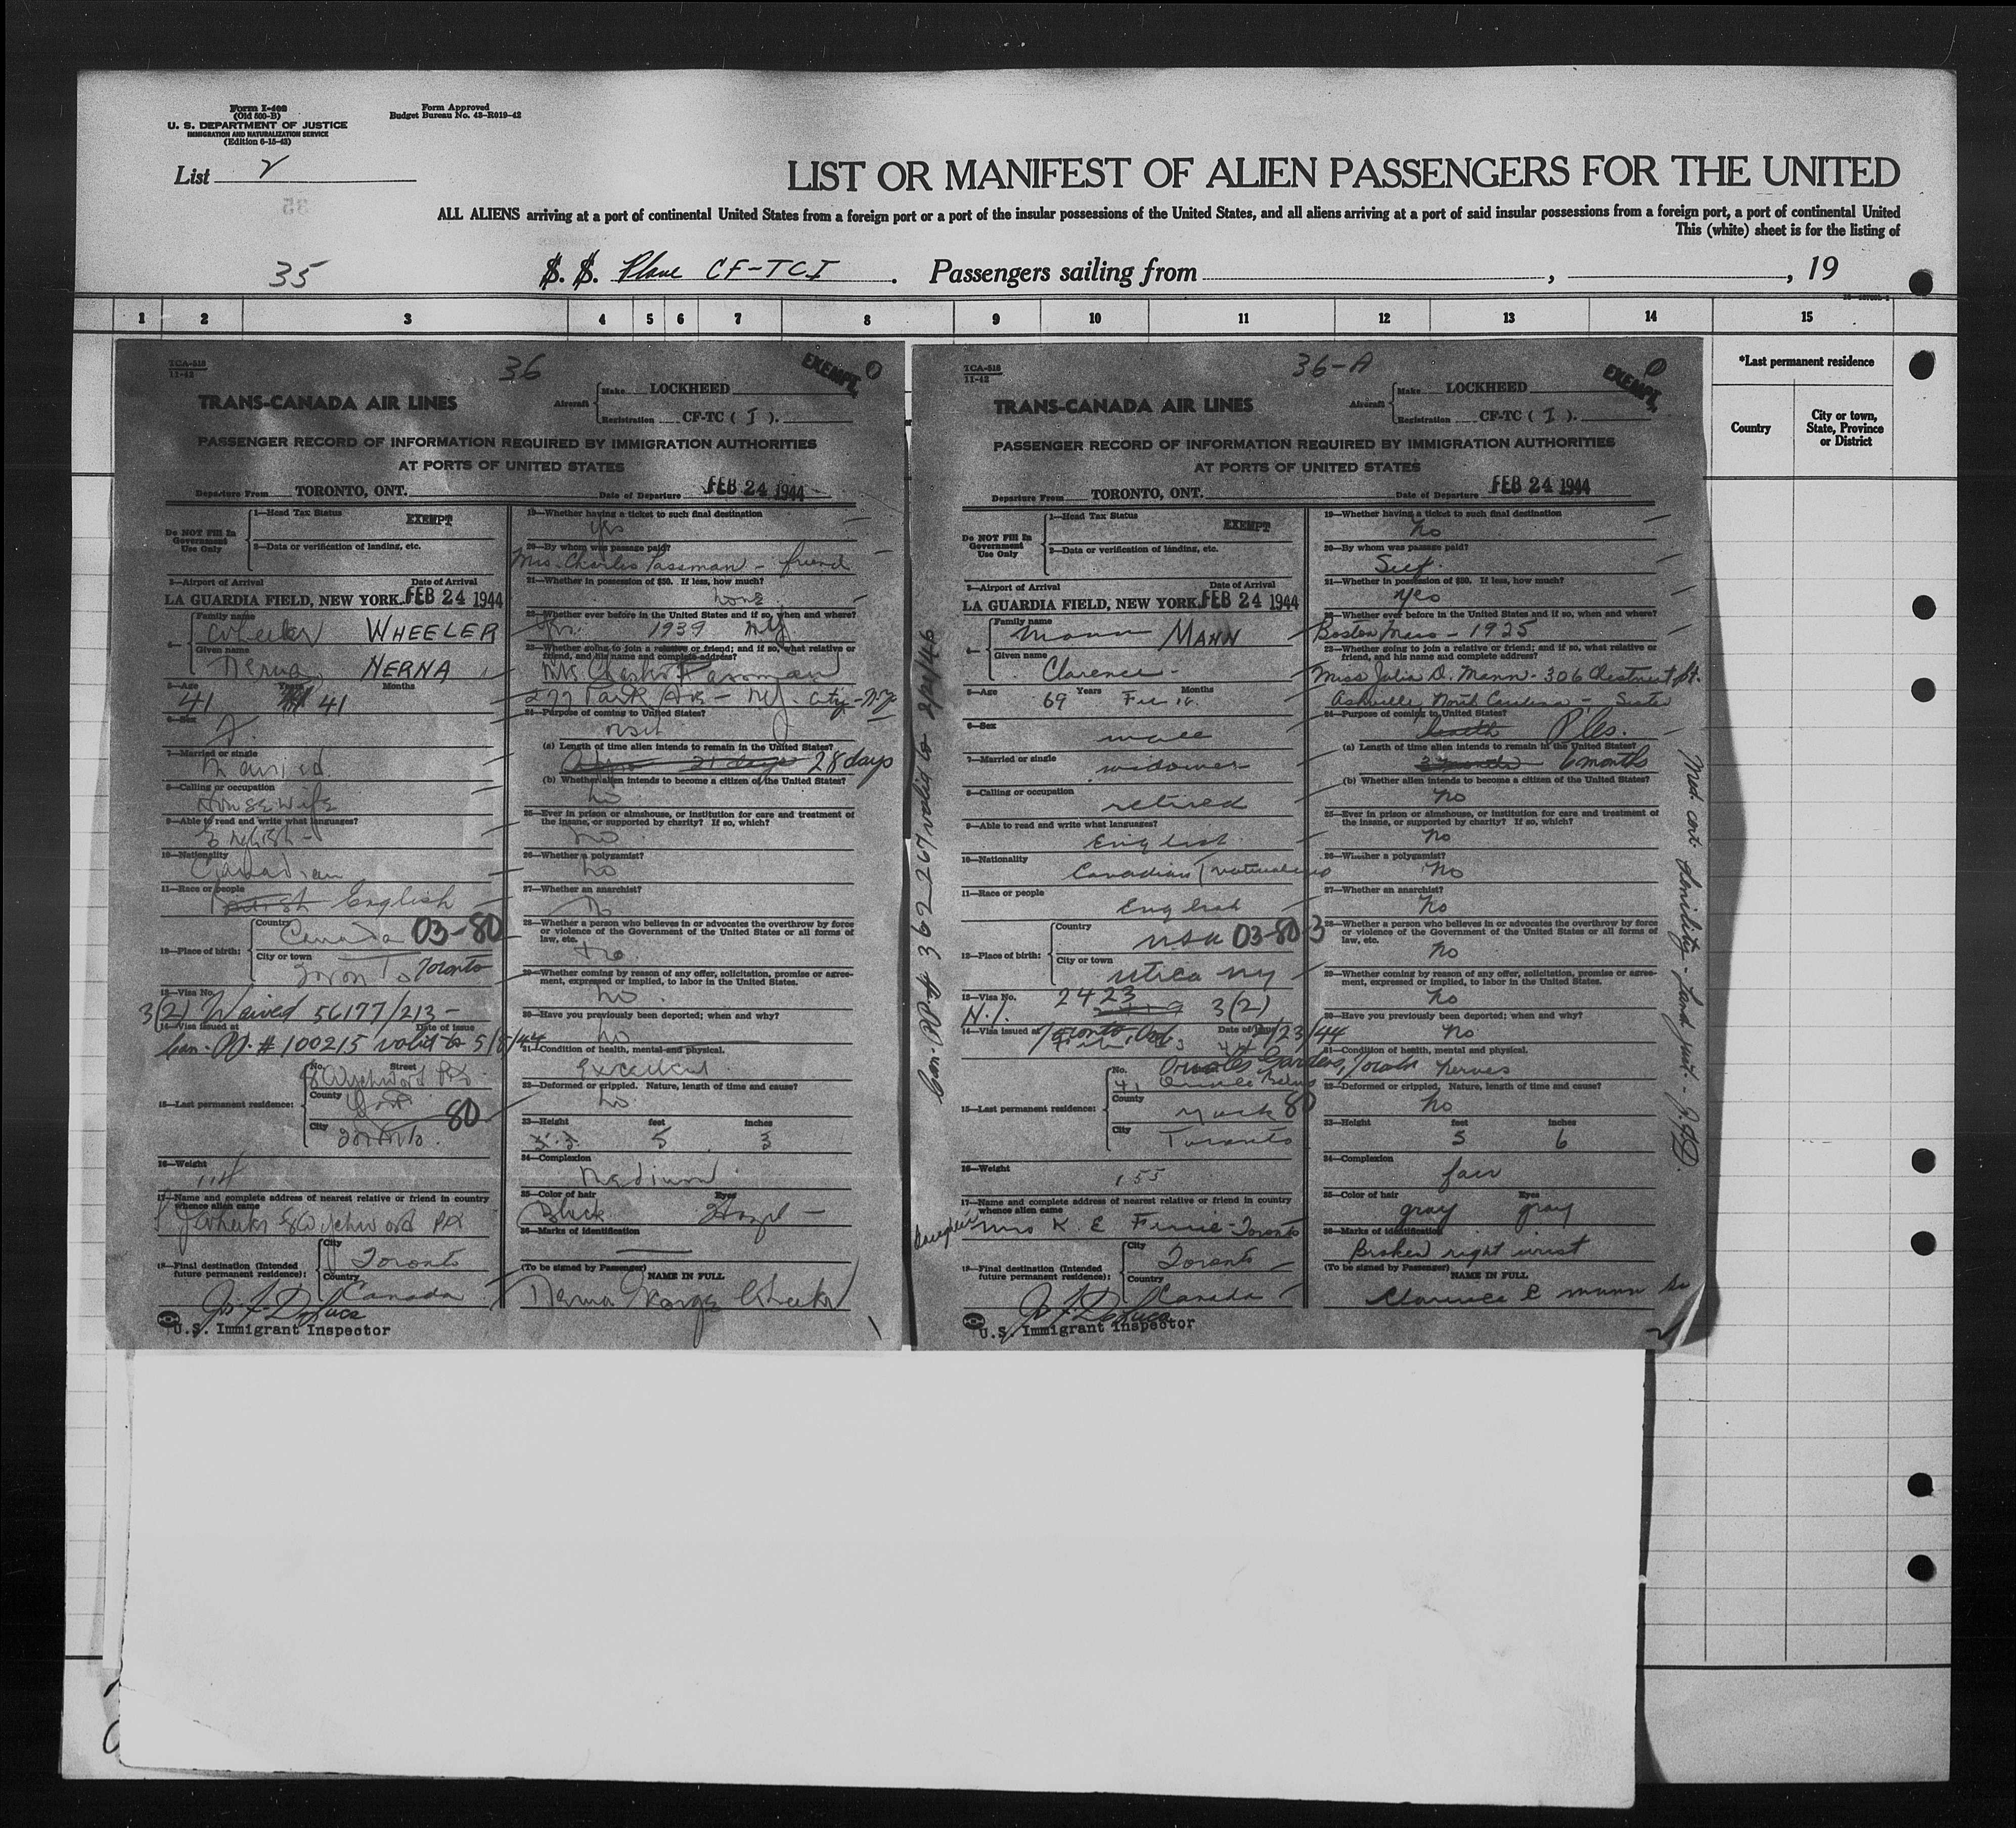 Form I-402
(Old 500-B)
U. S. DEPARTMENT OF JUSTICE
IMMIGRATION AND NATURALIZATION SERVICE
(Edition 6-15-43)
Form Approved
Budget Bureau No. 43-R019-42
List 2
LIST OR MANIFEST OF ALIEN PASSENGERS FOR THE UNITED
ALL ALIENS arriving at a port of continental United States from a foreign port or a port of the insular possessions of the United States, and all aliens arriving at a port of said insular possessions from a foreign port, a port of continental United
This (white) sheet is for the listing of
35
S. S. Plane CF-TCI. Passengers sailing from , , 19
1 2 3 4 5 6 7 8 9 10 11 12 13 14 15
*Last permanent residence
Country
City or town, State, Province or District
TCA-518
11-42
36
EXEMPT 0
TRANS-CANADA AIR LINES
Aircraft Make LOCKHEED
Registration CF-TC ( I ).
PASSENGER RECORD OF INFORMATION REQUIRED BY IMMIGRATION AUTHORITIES
AT PORTS OF UNITED STATES
Departure From TORONTO, ONT. Date of Departure FEB 24 1944
Do NOT Fill In Government Use Only
1—Head Tax Status EXEMPT
2—Data or verification of landing, etc.
3—Airport of Arrival Date of Arrival
LA GUARDIA FIELD, NEW YORK. FEB 24 1944
4— Family name Wheeler WHEELER
Given name Nerna NERNA
5—Age 41 Years 41 Months
6—Sex F.
7—Married or single Married
8—Calling or occupation Housewife
9—Able to read and write what languages?
English
10—Nationality Canadian
11—Race or people British English
12—Place of birth: Country Canada 03-80
City or town Toronto Toronto
13—Visa No.
3(2) Waived 56177/213-
14—Visa issued at Date of issue
Can. PP. # 100215 valid to 5/8/44
15—Last permanent residence: No. Street
8 Wychwood Pk
County York
80
City Toronto.
16—Weight 114
17—Name and complete address of nearest relative or friend in country whence alien came
J Wheeler 8 Wychwood Pk
18—Final destination (Intended future permanent residence): City Toronto
Country Canada
U.S. Immigrant Inspector
19—Whether having a ticket to such final destination
Yes
20—By whom was passage paid?
Mrs. Charles Passman - friend
21—Whether in possession of $50. If less, how much?
none
22—Whether ever before in the United States and if so, when and where?
Yes. 1939 N.Y.
23—Whether going to join a relative or friend; and if so, what relative or friend, and his name and complete address?
Mrs Charles Passman
277 Park Ave - N.Y. City - N.Y.
24—Purpose of coming to United States?
visit
(a) Length of time alien intends to remain in the United States?
21 days 28 days
(b) Whether alien intends to become a citizen of the United States?
no
25—Ever in prison or almshouse, or institution for care and treatment of the insane, or supported by charity? If so, which?
no
26—Whether a polygamist?
no
27—Whether an anarchist?
no
28—Whether a person who believes in or advocates the overthrow by force or violence of the Government of the United States or all forms of law, etc.
no
29—Whether coming by reason of any offer, solicitation, promise or agreement, expressed or implied, to labor in the United States.
no
30—Have you previously been deported; when and why?
no
31—Condition of health, mental and physical.
Excellent
32—Deformed or crippled. Nature, length of time and cause?
no
33—Height feet inches
5 3
34—Complexion
Medium
35—Color of hair Eyes
Black Hazel
36—Marks of identification
(To be signed by Passenger) NAME IN FULL
TCA-518
11-42
36-A
EXEMPT 0
TRANS-CANADA AIR LINES
Aircraft Make LOCKHEED
Registration CF-TC ( I ).
PASSENGER RECORD OF INFORMATION REQUIRED BY IMMIGRATION AUTHORITIES
AT PORTS OF UNITED STATES
Departure From TORONTO, ONT. Date of Departure FEB 24 1944
Do NOT Fill In Government Use Only
1—Head Tax Status EXEMPT
2—Data or verification of landing, etc.
3—Airport of Arrival Date of Arrival
LA GUARDIA FIELD, NEW YORK. FEB 24 1944
4— Family name Mann MANN
Given name Clarence
5—Age 69 Years Months
6—Sex male
7—Married or single widower
8—Calling or occupation retired
9—Able to read and write what languages?
English
10—Nationality Canadian
11—Race or people English
12—Place of birth: Country USA 03-80-3
City or town Utica NY
13—Visa No. 2423
N.I. 3(2)
14—Visa issued at Toronto, Ont. Date of issue /23/44
15—Last permanent residence: No.
Gardens, Toronto
County York 80
City Toronto
16—Weight 155
17—Name and complete address of nearest relative or friend in country whence alien came
Daughter Mrs K. E Toronto
18—Final destination (Intended future permanent residence): City Toronto
Country Canada
U.S. Immigrant Inspector
Can. PP. # 362267 valid to 2/21/46
19—Whether having a ticket to such final destination
No
20—By whom was passage paid?
Self.
21—Whether in possession of $50. If less, how much?
Yes
22—Whether ever before in the United States and if so, when and where?
Boston Mass - 1925
23—Whether going to join a relative or friend; and if so, what relative or friend, and his name and complete address?
Miss Julia D. Mann - 306 Chestnut St.
Asheville North Carolina - Sister
24—Purpose of coming to United States?
health Ples.
(a) Length of time alien intends to remain in the United States?
3 months 6 months
(b) Whether alien intends to become a citizen of the United States?
no
25—Ever in prison or almshouse, or institution for care and treatment of the insane, or supported by charity? If so, which?
No
26—Whether a polygamist?
No
27—Whether an anarchist?
No
28—Whether a person who believes in or advocates the overthrow by force or violence of the Government of the United States or all forms of law, etc.
No
29—Whether coming by reason of any offer, solicitation, promise or agreement, expressed or implied, to labor in the United States.
No
30—Have you previously been deported; when and why?
No
31—Condition of health, mental and physical.
nerves
32—Deformed or crippled. Nature, length of time and cause?
No
33—Height feet inches
5 6
34—Complexion
fair
35—Color of hair Eyes
gray gray
36—Marks of identification
Broken right wrist
(To be signed by Passenger) NAME IN FULL
Clarence E Mann Sr
Med. cert. Senility -